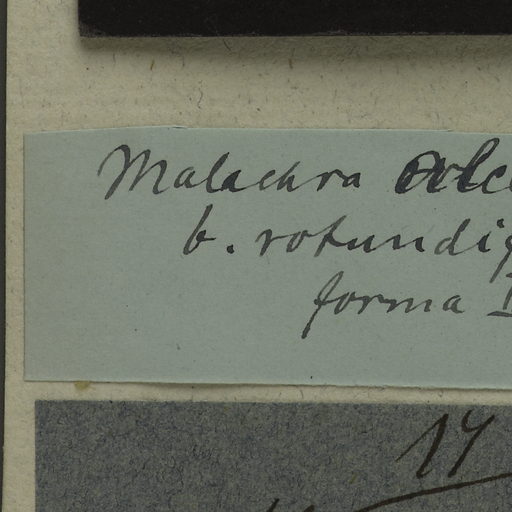 Malachra alc
b. rotundif
forma I
17